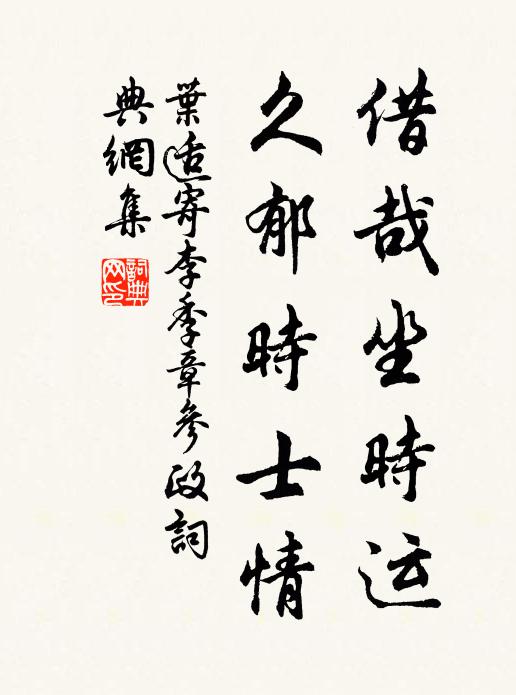 借哉坐時运
久郁時士情
葉适寄李季章參政詞
典網集
詞典
网印